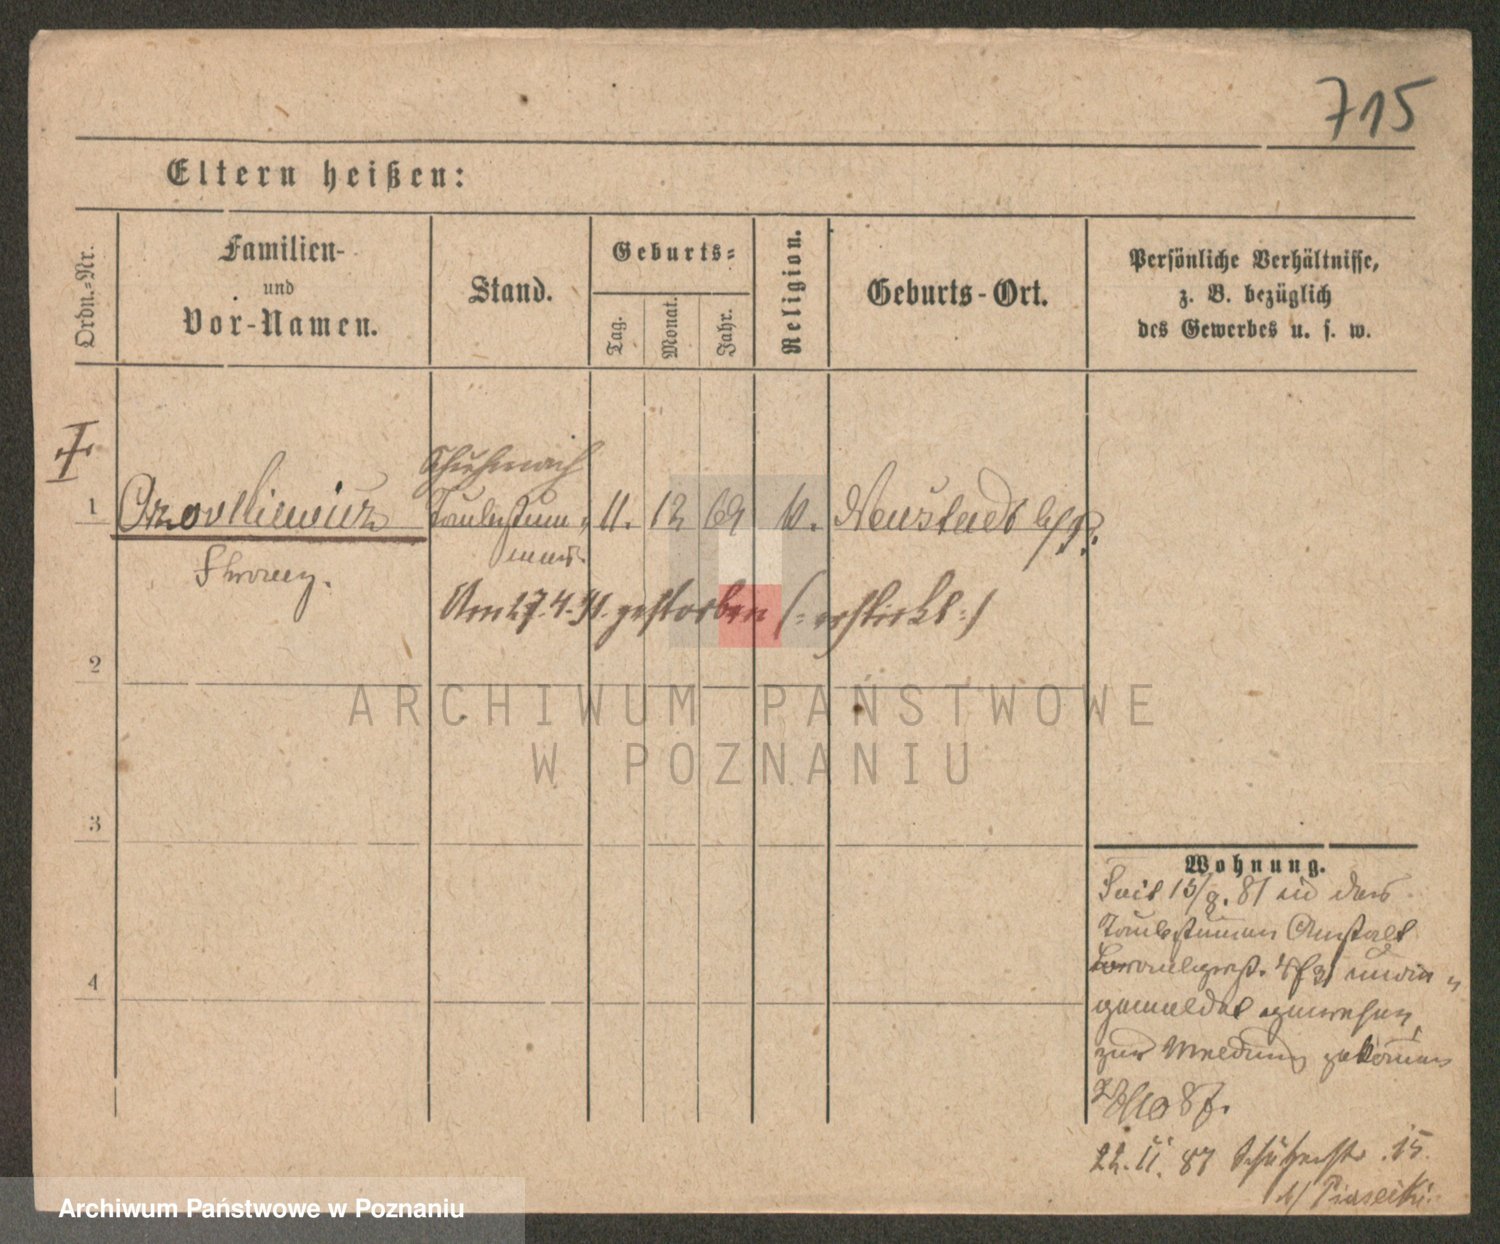 715
Eltern heißen:
Ordn.-Nr.
Familien-
und
Vor-Namen.
Stand.
Geburts-
Tag.
Monat.
Jahr.
Religion.
Geburts-Ort.
Persönliche Verhältnisse,
z. B. bezüglich
des Gewerbes u. s. w.
Schuhmach
1
Taubstum-
11. 12 69
k.
Neustadt b/P.
Franz.
Am 27.4.91. gestorben (: erstickt :)
2
ARCHIWUM PAŃSTWOWE
W POZNANIU
3
Wohnung.
Seit 13/9. 81 in der
Taubstummen Anstalt
4
gemeldet gewesen,
zur Meldung gekommen
22. 11. 87 Schützenstr. 15.
b/ Piasecki.
Archiwum Państwowe w Poznaniu